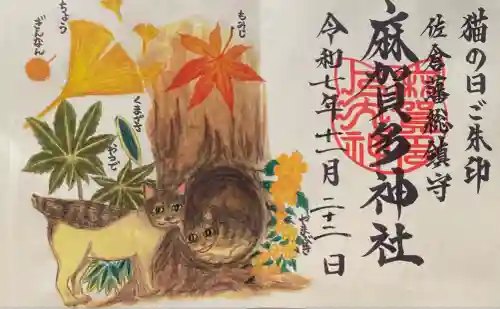 猫の日ご朱印
佐倉藩総鎮守
麻賀多神社
令和七年十一月二十二日
もみじ
ちょう
ぎんなん
くまざさ
やつで